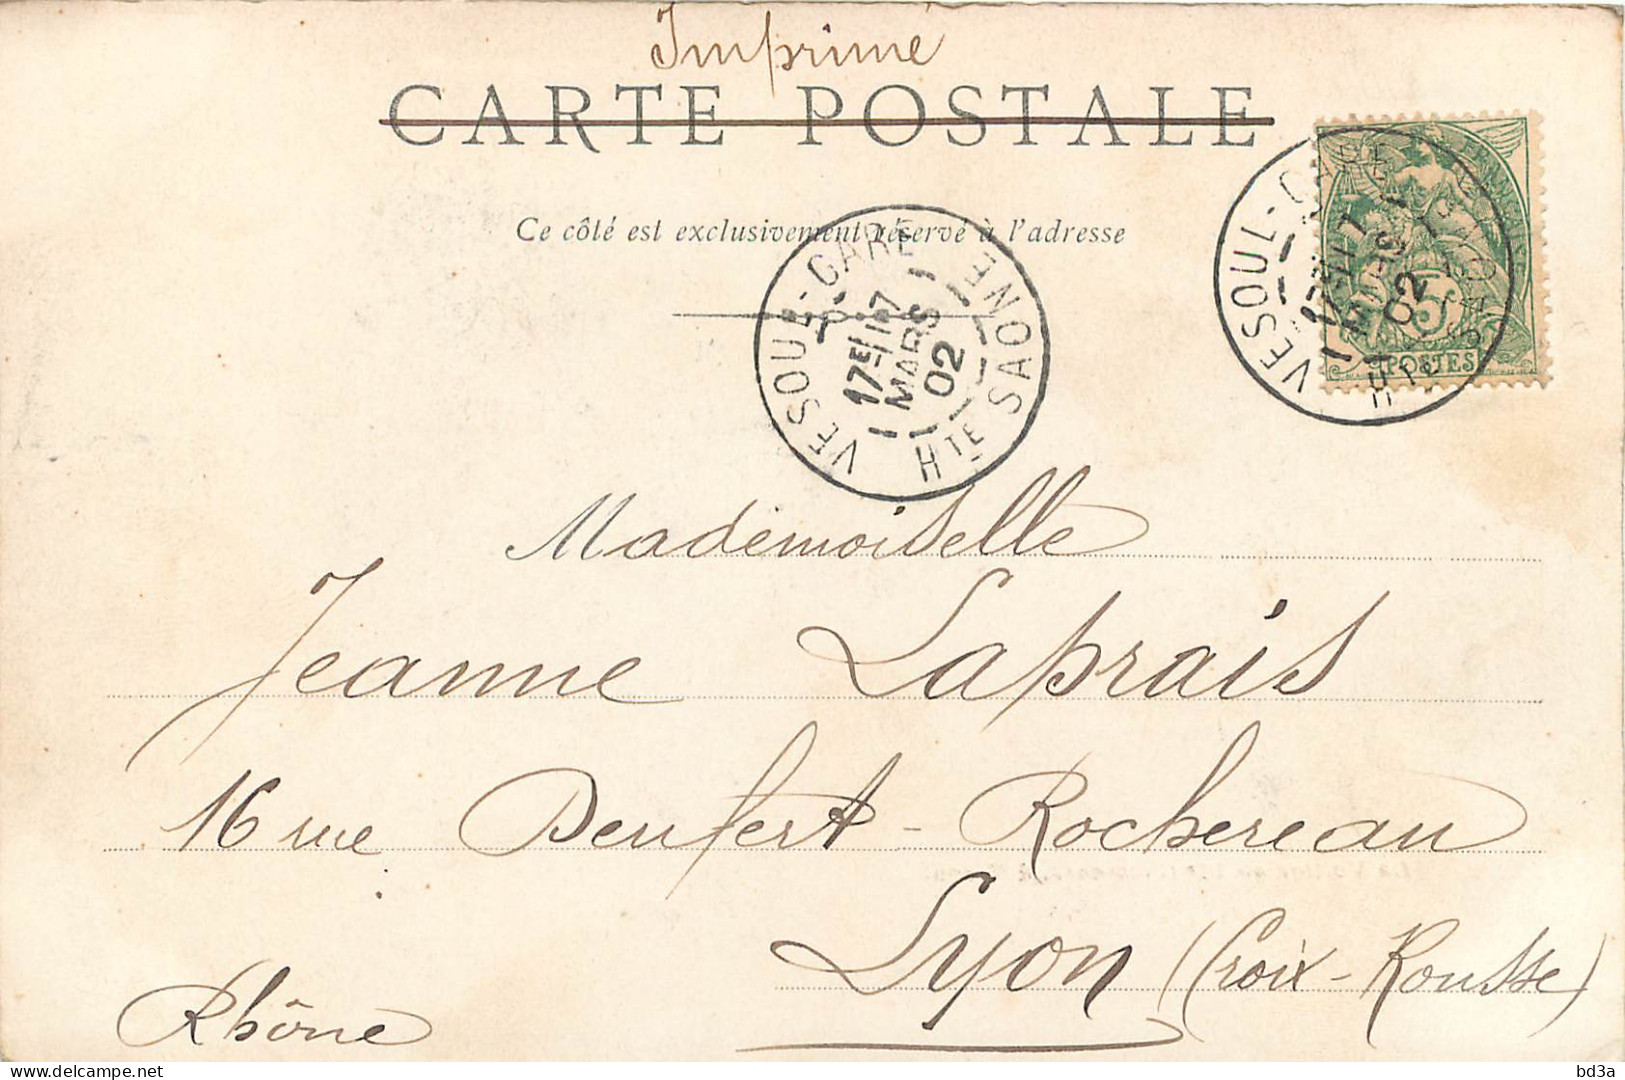 Imprimé
CARTE POSTALE
Ce côté est exclusivement réservé à l'adresse
VESOUL-GARE
17E/17
MARS
02
HTE SAONE
VESOUL-GARE
MARS
02
HTE SAONE
5
POSTES
Mademoiselle
Jeanne Laprais
16 rue Denfert-Rochereau
Lyon (Croix-Rousse)
Rhône
www.delcampe.net
bd3a